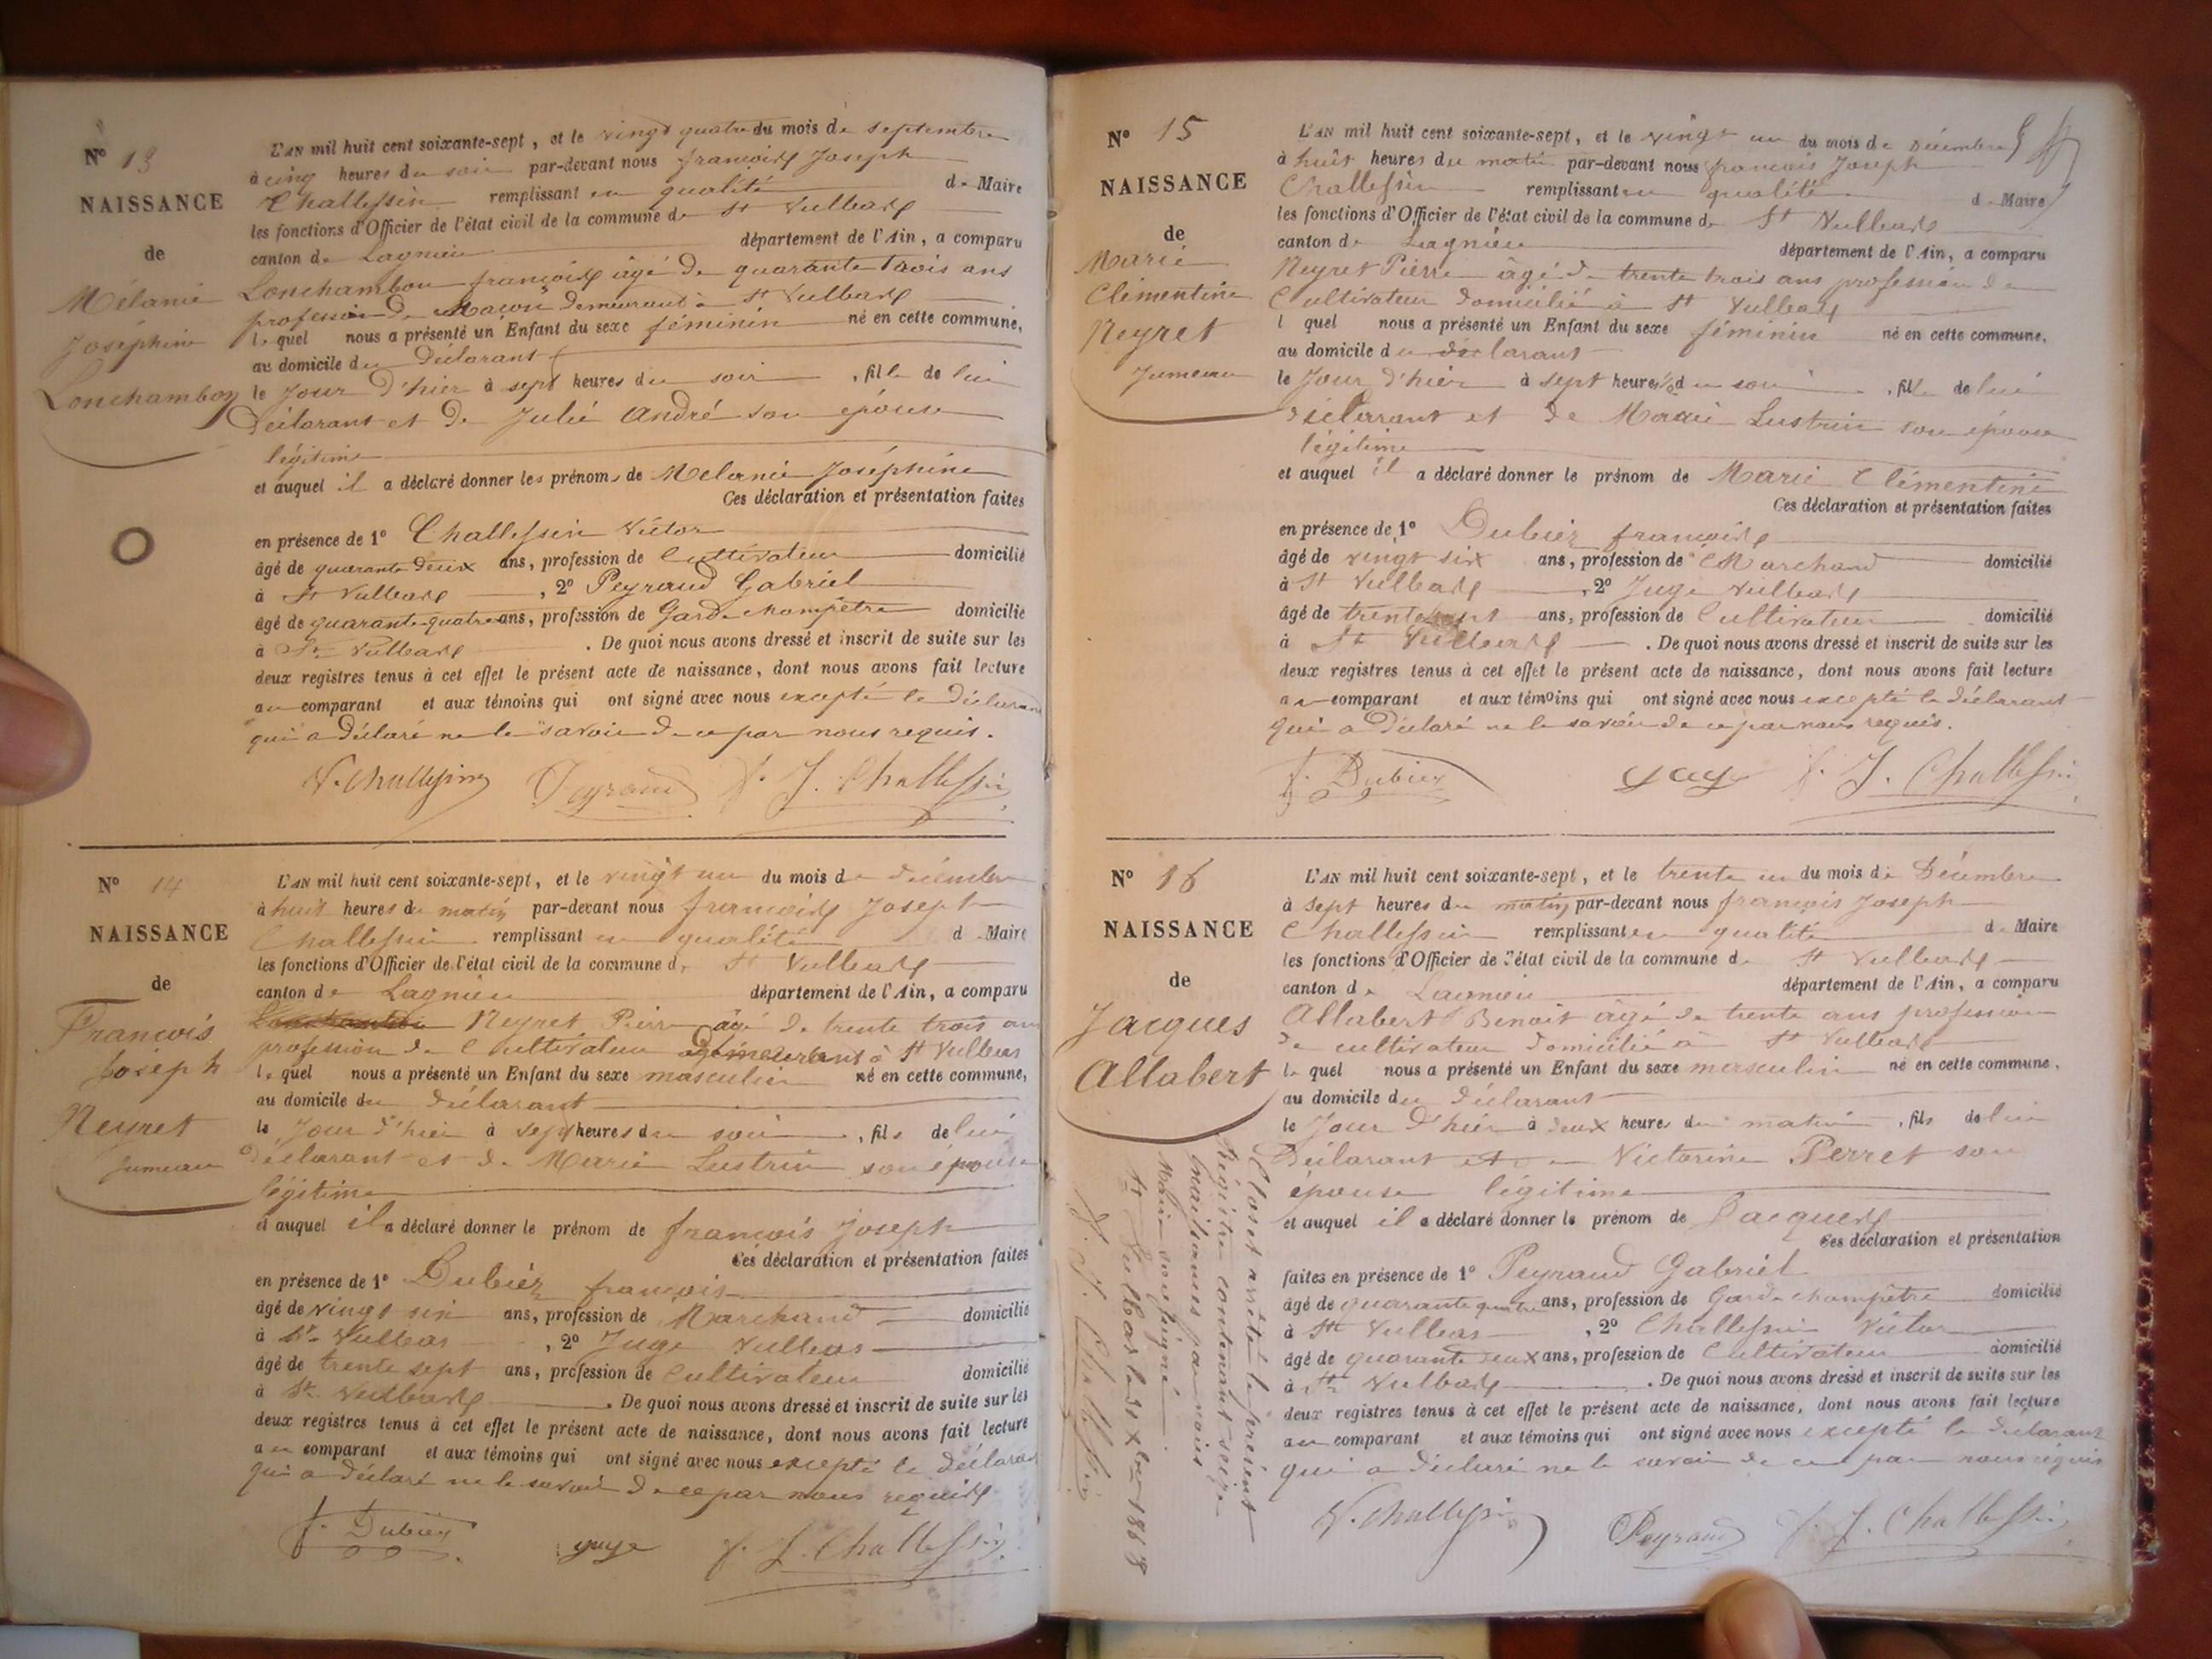 N° 13
NAISSANCE
de
Mélanie
Joséphine
Lonchambon
L'AN mil huit cent soixante-sept, et le vingt quatre du mois de septembre
à cinq heures du soir par-devant nous françois Joseph
Challessin remplissant en qualité de Maire
les fonctions d'Officier de l'état civil de la commune de St Vulbas
canton de Lagnieu département de l'Ain, a comparu
Lonchambon françois âgé de quarante trois ans
profession de Maçon demeurant à St Vulbas
lequel nous a présenté un Enfant du sexe féminin né en cette commune,
au domicile du Déclarant
le Jour d'hier à sept heures du soir, fille de lui
Déclarant et de Julie André son épouse
légitime
et auquel il a déclaré donner les prénoms de Mélanie Joséphine
Ces déclaration et présentation faites
en présence de 1° Challessin Victor
âgé de quarante deux ans, profession de Cultivateur domicilié
à St Vulbas, 2° Peyraud Gabriel
âgé de quarante-quatre ans, profession de Garde champêtre domicilié
à St Vulbas. De quoi nous avons dressé et inscrit de suite sur les
deux registres tenus à cet effet le présent acte de naissance, dont nous avons fait lecture
au comparant et aux témoins qui ont signé avec nous excepté le Déclarant
qui a Déclaré ne le savoir de ce par nous requis.
V. Challessin Peyraud f. J. Challessin
N° 14
NAISSANCE
de
François
Joseph
Neyret
jumeau
L'AN mil huit cent soixante-sept, et le vingt un du mois de décembre
à huit heures du matin par-devant nous françois Joseph
Challessin remplissant en qualité d Maire
les fonctions d'Officier de l'état civil de la commune de St Vulbas
canton de Lagnieu département de l'Ain, a comparu
Neyret Pierre âgé de trente trois ans
profession de Cultivateur demeurant à St Vulbas
lequel nous a présenté un Enfant du sexe masculin né en cette commune,
au domicile du déclarant
le Jour d'hier à sept heures du soir, fils de lui
déclarant et de Marie Lustrin son épouse
légitime
et auquel il a déclaré donner le prénom de françois Joseph
Ces déclaration et présentation faites
en présence de 1° Dubiez françois
âgé de vingt six ans, profession de Marchand domicilié
à St Vulbas, 2° Juge Vulbas
âgé de trente sept ans, profession de Cultivateur domicilié
à St Vulbas. De quoi nous avons dressé et inscrit de suite sur les
deux registres tenus à cet effet le présent acte de naissance, dont nous avons fait lecture
au comparant et aux témoins qui ont signé avec nous excepté le déclarant
qui a déclaré ne le savoir de ce par nous requis
f. Dubiez juge f. J. Challessin
N° 15
NAISSANCE
de
Marie
Clémentine
Neyret
Jumeau
L'AN mil huit cent soixante-sept, et le vingt un du mois de Décembre
à huit heures du matin par-devant nous françois Joseph
Challessin remplissant en qualité d Maire
les fonctions d'Officier de l'état civil de la commune de St Vulbas
canton de Lagnieu département de l'Ain, a comparu
Neyret Pierre âgé de trente trois ans profession de
Cultivateur domicilié à St Vulbas
l quel nous a présenté un Enfant du sexe féminin né en cette commune,
au domicile du déclarant
le Jour d'hier à sept heures du soir, fille de lui
déclarant et de Marie Lustrin son épouse
légitime
et auquel il a déclaré donner le prénom de Marie Clémentine
Ces déclaration et présentation faites
en présence de 1° Dubiez françois
âgé de vingt six ans, profession de Marchand domicilié
à St Vulbas, 2° Juge Vulbas
âgé de trente sept ans, profession de Cultivateur domicilié
à St Vulbas. De quoi nous avons dressé et inscrit de suite sur les
deux registres tenus à cet effet le présent acte de naissance, dont nous avons fait lecture
au comparant et aux témoins qui ont signé avec nous excepté le déclarant
qui a Déclaré ne le savoir de ce par nous requis.
f. Dubiez juge f. J. Challessin
N° 16
NAISSANCE
de
Jacques
Allabert
L'AN mil huit cent soixante-sept, et le trente un du mois de Décembre
à sept heures du matin par-devant nous françois Joseph
Challessin remplissant en qualité d Maire
les fonctions d'Officier de l'état civil de la commune d St Vulbas
canton de Lagnieu département de l'Ain, a comparu
Allabert Benoit âgé de trente ans profession
de cultivateur domicilié à St Vulbas
lequel nous a présenté un Enfant du sexe masculin né en cette commune,
au domicile du Déclarant
le Jour d'hier à deux heures du matin, fils de lui
Déclarant et de Victorine Perret son
épouse légitime
et auquel il a déclaré donner le prénom de Jacques
Ces déclaration et présentation
faites en présence de 1° Peyraud Gabriel
âgé de quarante quatre ans, profession de Garde champêtre domicilié
à St Vulbas, 2° Challessin Victor
âgé de quarante deux ans, profession de Cultivateur domicilié
à St Vulbas. De quoi nous avons dressé et inscrit de suite sur les
deux registres tenus à cet effet le présent acte de naissance, dont nous avons fait lecture
au comparant et aux témoins qui ont signé avec nous excepté le déclarant
qui a déclaré ne le savoir de ce par nous requis
V. Challessin Peyraud f. J. Challessin
Clos et arrêté le présent
Registre contenant seize
naissances par nous
Maire soussigné
St Vulbas le 31 Xbre 1868
f. J. Challessin